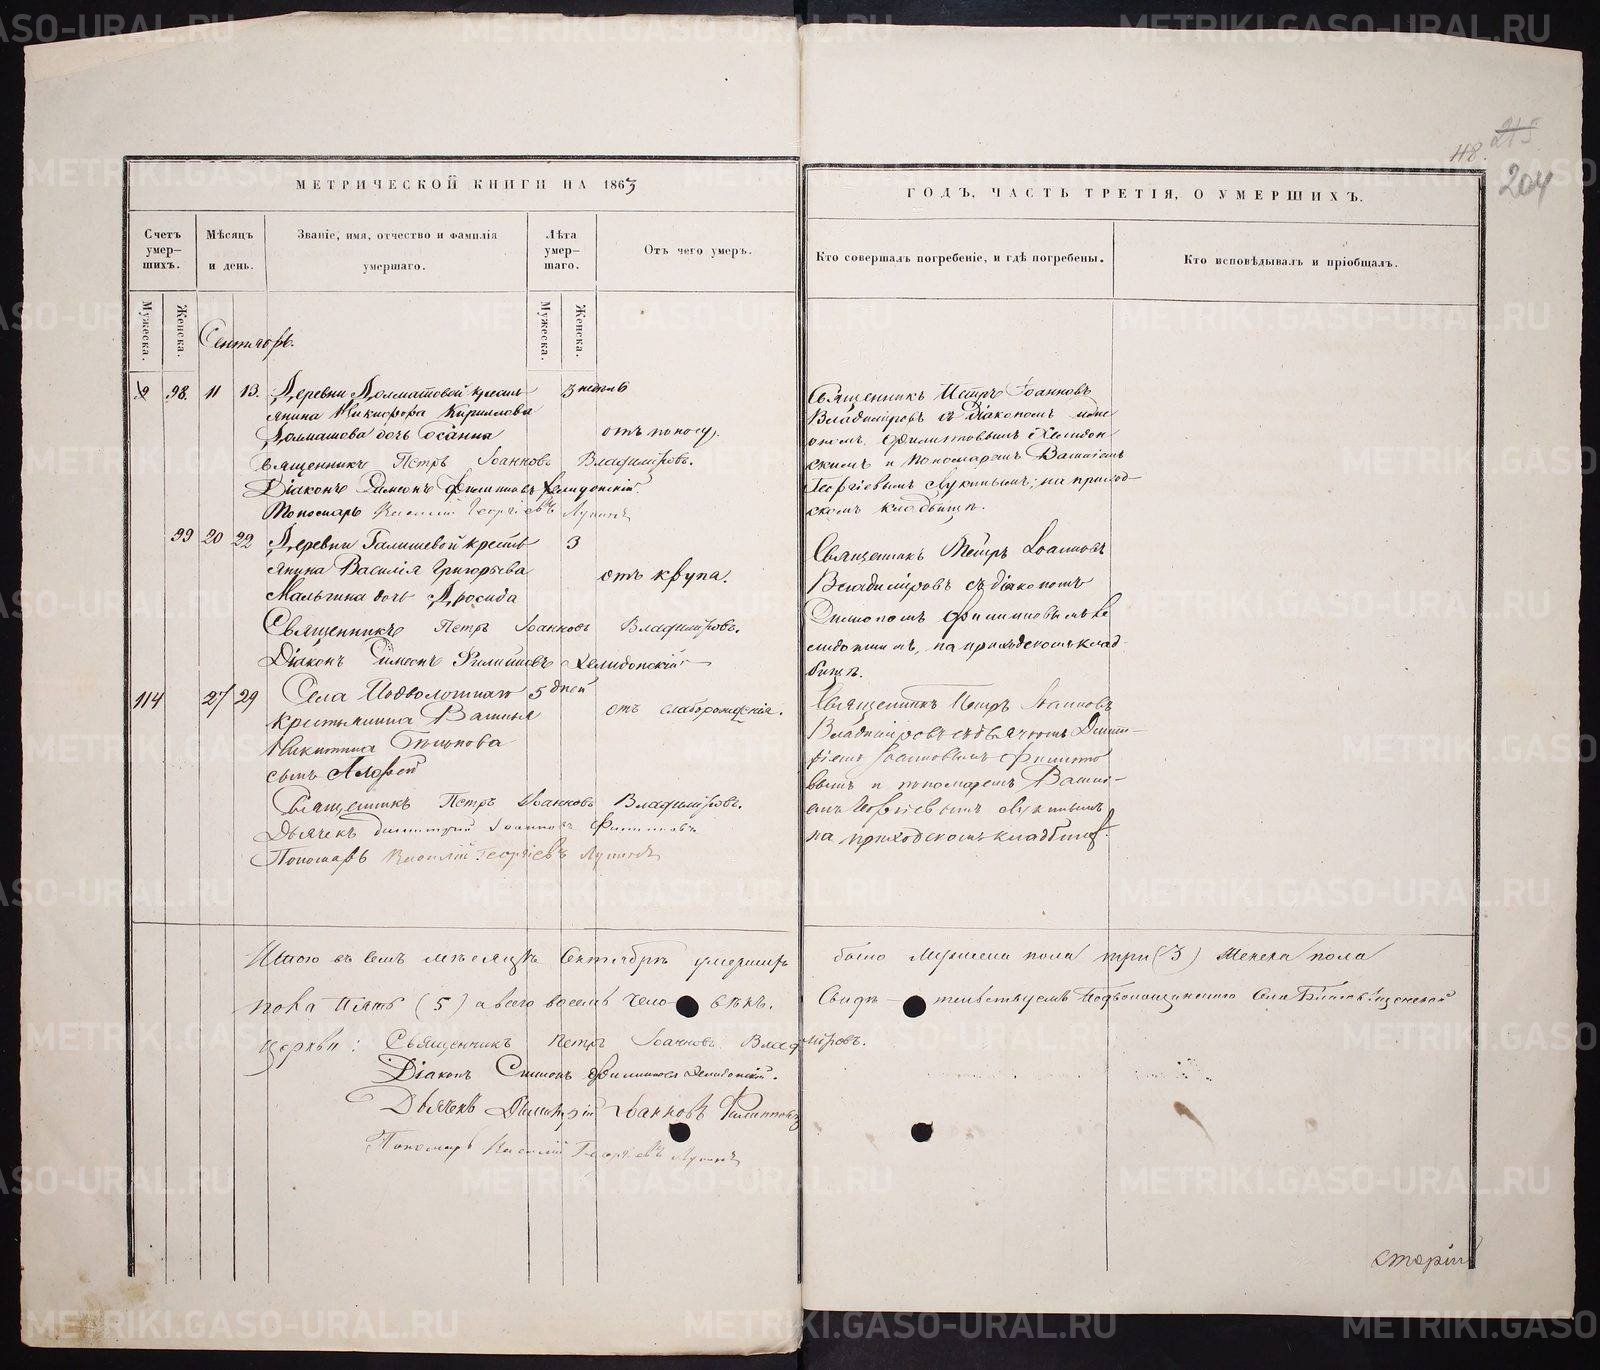 МЕТРИЧЕСКОЙ КНИГИ НА 1863
ГОДЪ, ЧАСТЬ ТРЕТІЯ, О УМЕРШИХЪ.
48.
215
204
Счетъ умер-
шихъ.
Мѣсяцъ
и день.
Званіе, имя, отчество и фамилія
умершаго.
Лѣта
умер-
шаго.
Отъ чего умеръ.
Кто совершалъ погребеніе, и гдѣ погребены.
Кто исповѣдывалъ и пріобщалъ.
Мужеска.
Женска.
Мужеска.
Женска.
Сентябрь.
98. 11 13. Деревни Долматовой кресть
янина Никифора Кириллова
Долматова дочь
3 недѣль
отъ поносу.
Священникъ Петръ Іоанновъ Владиміровъ.
Діаконъ Симеонъ Филиповъ Хелидонскій
Пономарь Василій Георгіевъ Лукинъ
Священникъ Петръ Іоанновъ
Владиміровъ съ Діакономъ
Филиповымъ Хелидон
скимъ и пономаремъ Василіемъ
Георгіевымъ Лукинымъ; на приход-
скомъ кладбищѣ.
99 20 22 Деревни Галишевой кресть
янина Василія Григорьева
Мальгина дочь Дросида
3
отъ крупа.
Священникъ Петръ Іоанновъ Владиміровъ.
Діаконъ Симеонъ Филиповъ Хелидонскій
Священникъ Петръ Іоанновъ
Владиміровъ съ діакономъ
Симеономъ Филиповымъ Хе
лидонскимъ, на приходскомъ клад-
бищѣ.
114 27 29 Села Подволошнаго
крестьянина Василья
Никитина
сынъ Андрей
5 дней
отъ слаборожденія.
Священникъ Петръ Іоанновъ Владиміровъ.
Дьячекъ Димитрій Іоанновъ Филиповъ
Пономарь Василій Георгіевъ Лукинъ
Священникъ Петръ Іоанновъ
Владиміровъ съ дьячкомъ Димит-
ріемъ Іоанновымъ Филипо
вымъ и пономаремъ Василі-
емъ Георгіевымъ Лукинымъ
на приходскомъ кладбищѣ.
Итого въ семъ мѣсяцѣ Сентябрѣ умершихъ было Мужеска пола три (3) Женска пола
пола пять (5) а всего восемь человѣкъ. Свидѣтельствуемъ Подволошинскаго Села
Церкви: Священникъ Петръ Іоанновъ Владиміровъ.
Діаконъ Симеонъ Филиповъ Хелидонскій.
Дьячекъ Димитрій Іоанновъ Филипповъ
Пономарь Василій Георгіевъ Лукинъ
METRIKI.GASO-URAL.RU